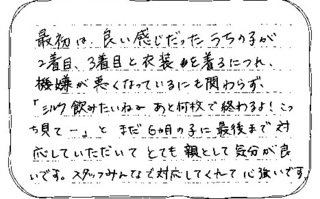 最初は、良い感じだったうちの子が
2着目、3着目と衣装を着るにつれ、
機嫌が悪くなっているにも関わらず、
「ミルク飲みたいねー あと何枚で終わるよ!こっ
ち見てー。」と まだ6ヶ月の子に最後まで対
応していただいて とても親として気分が良
いです。スタッフみんなで対応してくれて心強いです。